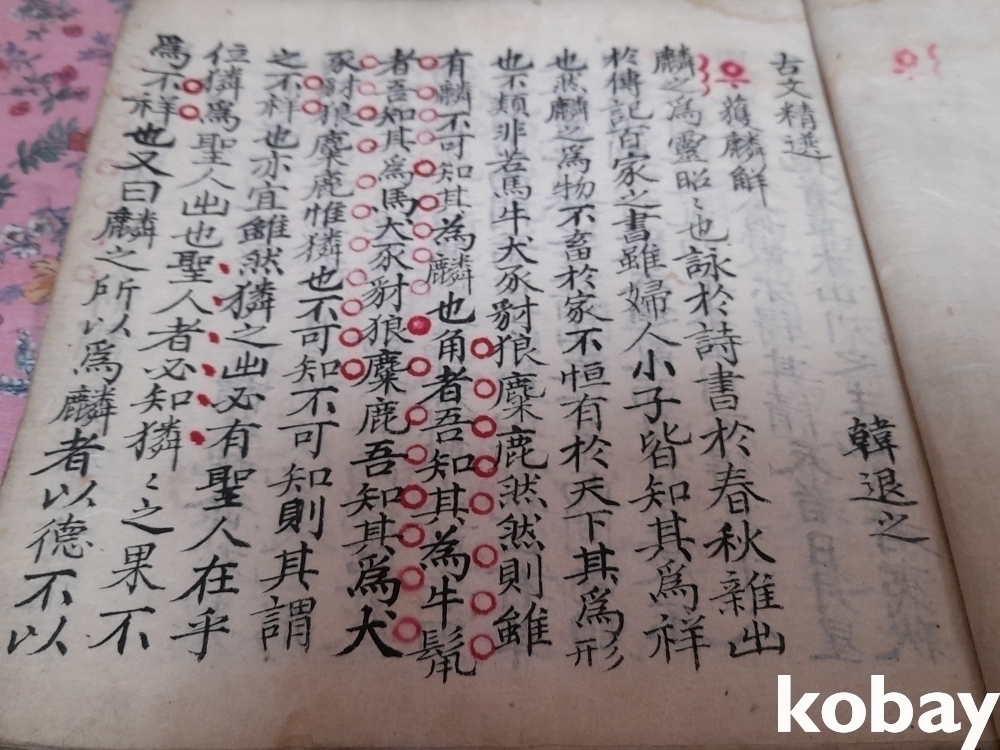 古文精選
獲麟解 韓退之
麟之爲靈昭〻也詠於詩書於春秋雜出
於傳記百家之書雖婦人小子皆知其爲祥
也然麟之爲物不畜於家不恒有於天下其爲形
也不類非若馬牛犬豕豺狼麋鹿然然則雖
有麟不可知其為麟也角者吾知其為牛鬣
者吾知其爲馬犬豕豺狼麋鹿吾知其爲犬
豕豺狼麋鹿惟獜也不可知不可知則其謂
之不祥也亦宜雖然獜之出必有聖人在乎
位獜爲聖人出也聖人者必知獜〻之果不
爲不祥也又曰麟之所以爲麟者以德不以
kobay